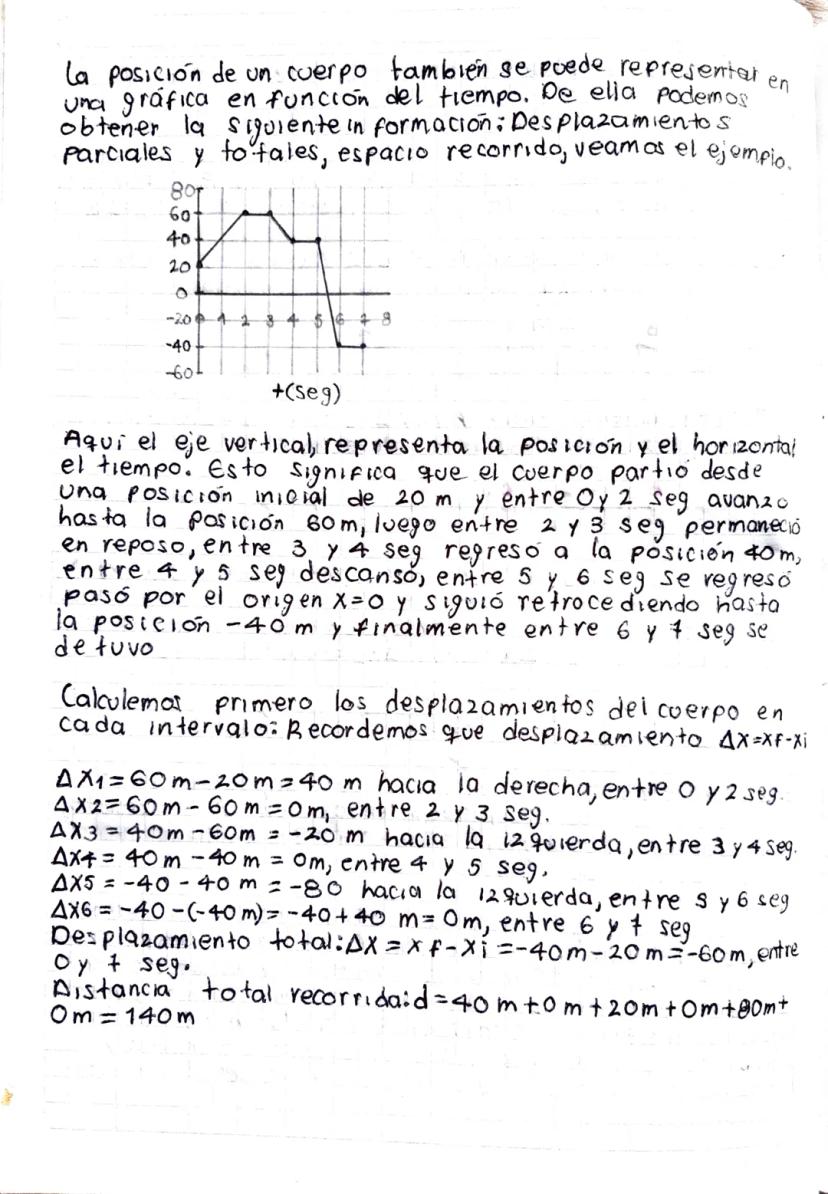 La posición de un cuerpo también se puede representar en
una gráfica en función del tiempo. De ella podemos
obtener la siguiente información: Desplazamientos
parciales y totales, espacio recorrido, veamos el ejemplo.
80
60
40
20
0
-20 0 1 2 3 4 5 6 7 8
-40
-60
t(seg)
Aquí el eje vertical, representa la posición y el horizontal
el tiempo. Esto significa que el cuerpo partió desde
una posición inicial de 20 m y entre 0 y 2 seg avanzo
hasta la posición 60m, luego entre 2 y 3 seg permaneció
en reposo, entre 3 y 4 seg regresó a la posición 40m,
entre 4 y 5 seg descansó, entre 5 y 6 seg se regresó
pasó por el origen x=0 y siguió retrocediendo hasta
la posición -40 m y finalmente entre 6 y 7 seg se
detuvo
Calculemos primero los desplazamientos del cuerpo en
cada intervalo: Recordemos que desplazamiento Δx=xf-xi
ΔX1=60m-20m=40 m hacia la derecha, entre 0 y 2 seg.
ΔX2=60m-60m=0m, entre 2 y 3 seg.
ΔX3=40m-60m=-20 m hacia la izquierda, entre 3 y 4 seg.
ΔX4=40m-40m=0m, entre 4 y 5 seg.
ΔX5=-40-40m=-80 hacia la izquierda, entre 5 y 6 seg
ΔX6=-40-(-40m)=-40+40 m=0m, entre 6 y 7 seg
Desplazamiento total: ΔX=xf-xi=-40m-20m=-60m, entre
0 y 7 seg.
Distancia total recorrida: d=40m+0m+20m+0m+80m+
0m=140m